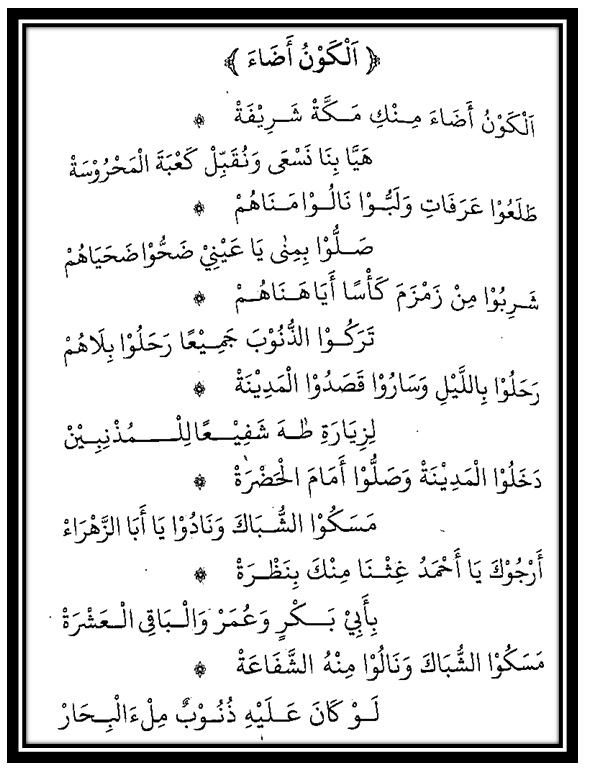 ﴿ اَلْكَوْنُ أَضَاءَ ﴾
اَلْكَوْنُ أَضَاءَ مِنْكِ مَكَّةْ شَرِيْفَةْ ۞
هَيَّا بِنَا نَسْعَى وَنُقَبِّلْ كَعْبَةَ الْمَحْرُوْسَةْ
طَلَعُوْا عَرَفَاتِ وَلَبُّوْا نَالُوْا مَنَاهُمْ ۞
صَلُّوْا بِمِنٰى يَا عَيْنِيْ ضَحُّوْا ضَحَيَاهُمْ
شَرِبُوْا مِنْ زَمْزَمَ كَأْسًا أَيَا هَنَاهُمْ ۞
تَرَكُوْا الذُّنُوْبَ جَمِيْعًا رَحَلُوْا بِلَاهُمْ
رَحَلُوْا بِاللَّيْلِ وَسَارُوْا قَصَدُوْا الْمَدِيْنَةْ ۞
لِزِيَارَةِ طٰهَ شَفِيْعًا لِلْمُذْنِبِيْنْ
دَخَلُوْا الْمَدِيْنَةْ وَصَلُّوْا أَمَامَ الْحَضْرَةْ ۞
مَسَكُوْا الشُّبَاكَ وَنَادُوْا يَا أَبَا الزَّهْرَاءْ
أَرْجُوْكَ يَا أَحْمَدُ غِثْنَا مِنْكَ بِنَظْرَةْ ۞
بِأَبِيْ بَكْرٍ وَعُمَرْ وَالْبَاقِى الْعَشْرَةْ
مَسَكُوْا الشُّبَاكَ وَنَالُوْا مِنْهُ الشَّفَاعَةْ ۞
لَوْ كَانَ عَلَيْهِ ذُنُوْبٌ مِلْءَ الْبِحَارْ